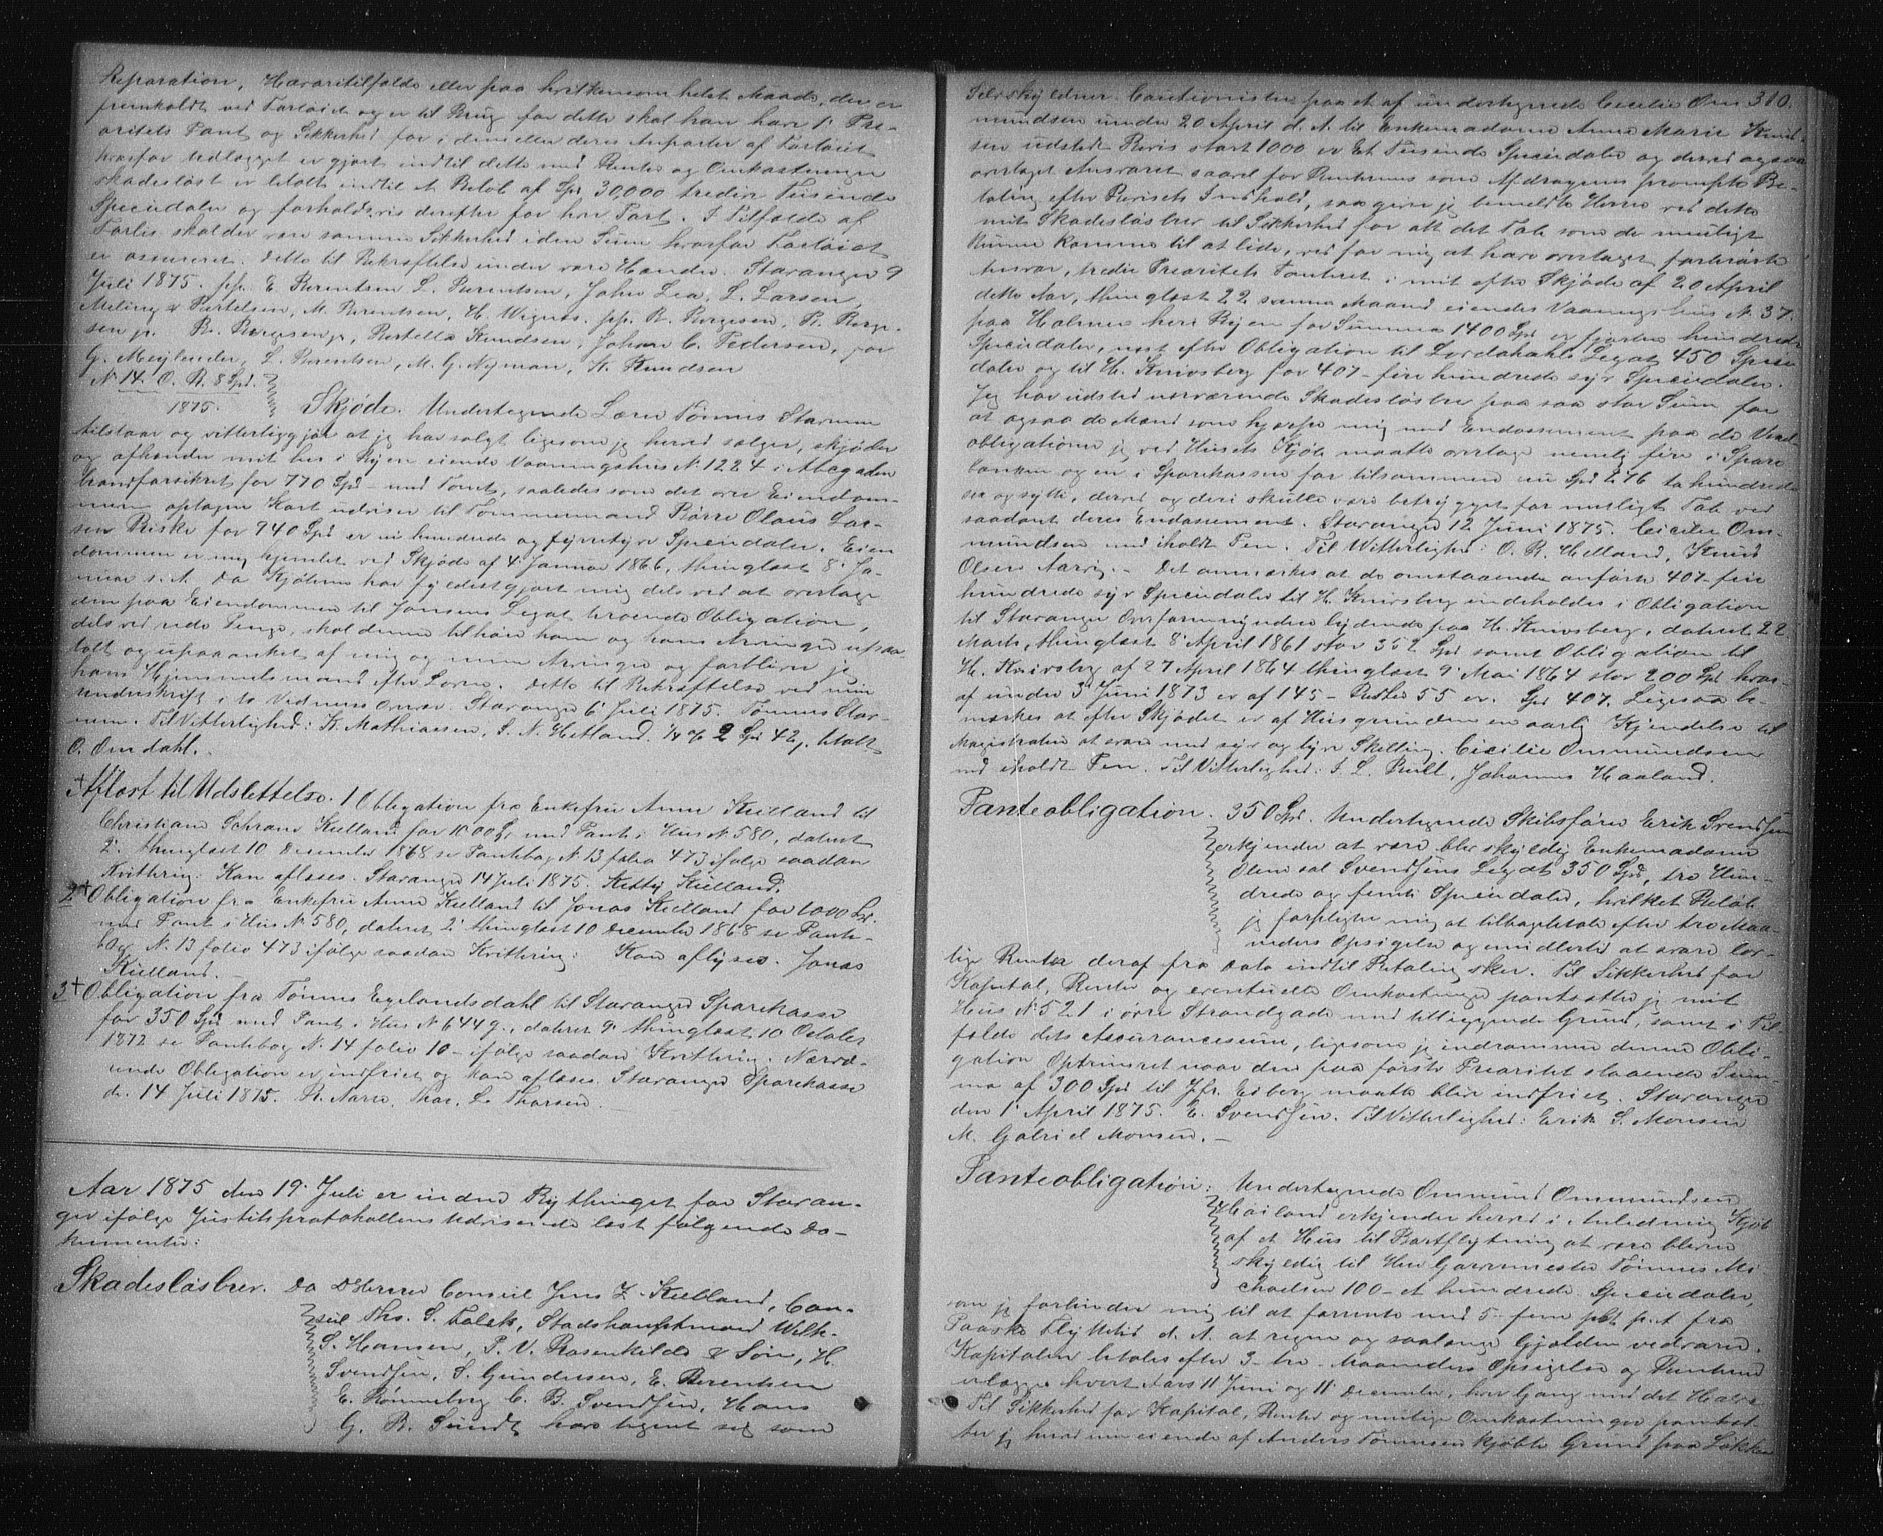 Reparation, Havaritilfælde eller paa hvilkensom helst Maade, der er
fremholdt ved Fartøiet og er til Brug for dette skal han have 1' Pri-
oritets Pant og Sikkerhed for i dem eller deres Anparter af Fartøiet
hvorfor Udlægget er gjort indtil dette med Renter og Omkostninger
skadesløst er betalt indtil et Beløb af Spd 30,000 tredive Tusinde
Speciedaler og forholdsvis derefter for hver Part. I Tilfælde af
Forlis skal der være samme Sikkerhed i den Sum hvorfor Fartøiet
er assureret. Dette til Bekræftelse under vore Hænder. Stavanger 9
Juli 1875. pp. E. Berentsen L. Berentsen, John Lea, L. Larsen,
Meling & Bertelsen, M. Berentsen, H. Wignæs. pp. B. Børgesen, B. Børge-
sen jr. Br. Børgesen jr, Knudsen, Johan C. Pedersen, for
G. Meylender, L. Berentsen, M. G. Nyman, H. Knudsen
N 14. O. R. 8 Spd.
1875.
Skjøde. Undertegnede Læru Tønnis Starum
tilstaar og vitterliggjør at jeg har solgt ligesom jeg herved sælger, skjøder
og afhænder mit her i Byen eiende Vaaningshus N. 1224 i Alegaden
brandforsikret for 770 Spd med Tomt, saaledes som det over Eiendom-
men optagne Kart udviser til Tømmermand Børre Olaus Lar-
sen Riske for 940 Spd er ni hundrede og fyrretyve Speciedaler. Eien
dommen er mig hjemlet ved Skjøde af 4' Januar 1866, thinglæst 8' Ja-
nuar s. A. Da Kjøberen har fyldestgjort mig dels ved at overtage
den paa Eiendommen til Jansens Legat hvoende Obligation,
dels ved rede Penge, skal denne tilhøre ham og hans Arvinger upaa-
talt og upaaanket af mig og mine Arvinger og forbliver jeg
hans Hjemmelsmand efter Loven. Dette til Bekræftelse ved min
Underskrift i to Vidners Overv. Stavanger 6' Juli 1875. Tønnis Star-
um. Til Vitterlighed: K. Mathiassen, S. N. Hetland. ¼ % 2 Spd 42, betalt
O. Omdahl.
1+ Aflæst til Udslettelse. 1 Obligation fra Enkefru Anna Kielland til
Christian Schrans Kielland for 1000 Spd med Pant i Hus N 580, dateret
2' thinglæst 10 December 1868 se Pantebog N. 13 folio 473 ifølge saadan
Kvittering: Kan aflæses. Stavanger 14 Juli 1875. Kitty Kielland.
2+ Obligation fra Enkefru Anna Kielland til Jonas Kielland for 1000 Spd.
med Pant i Hus N. 580, dateret 2' thinglæst 10 December 1868 se Pante-
bog N. 13 folio 473 ifølge saadan Kvittering: Kan aflyses. Jonas
Kielland.
3+ Obligation fra Tønnes Egelandsdahl til Stavanger Sparekasse
for 350 Spd med Pant i Hus N 644 g., dateret 9' thinglæst 10 October
1872 se Pantebog N. 14 folio 10 - ifølge saadan Kvittering. Nærvæ-
rende Obligation er indfriet og kan aflæses. Stavanger Sparekasse
d. 14 Juli 1875. R. Aarre, Thor. L. Thorsen.
Aar 1875 den 19. Juli er inden Bythinget for Stavan-
ger ifølge Justitsprotokollens Udvisende læst følgende Do-
kumenter:
Skadesløsbrev. Da DHerrer Consul Jens Z. Kielland, Con-
sul Ths. S. Falck, Stadshauptmand Wilh.
S. Hansen, P. V. Rosenkilde & Søn, H.
Svendsen, S. Gundersen, E. Berentsen
E. Rønneberg C. B. Svendsen, Hans
G. B. Sundt have tegnet sig som
Selvskyldner Cautionister paa et af undertegnede Cecilie Om- 310.
mundsen under 20 April d. A. til Enkemadame Anne Marie Knud
sen udstedt Bevis stort 1000 er Et Tusinde Speciedaler og derved ogsaa
overtaget Ansvaret saavel for Renternes som Afdragenes prompte Be-
taling efter Bevisets Indhold, saa giver jeg bemeldte Herrer ved dette
mit Skadesløsbrev til Sikkerhed for alt det Tab som de muligt
kunne komme til at lide, ved for mig at have overtaget forberørte
Ansvar, tredie Prioritets Panteret i mit efter Skjøde af 20 April
dette Aar, thinglæst 22 samme Maaned eiendes Vaaningshus N. 37.
paa Holmen her i Byen for Summen 1400 Spd er fjorten hundrede
Speciedaler, næst efter Obligation til Lordahahls Legat 450 Specie
daler og til H. Knivsberg for 407 - fire hundrede syv Speciedaler.
Jeg har udsted nærværende Skadesløsbrev paa saa stor Sum for
at ogsaa de Mænd som hjælpe mig med Endossement paa de Vexel
obligationer jeg ved Husets Kjøb maatte overtage nemlig fire i Spare
banken og en i Sparekassen for tilsammen en Spd 276 to hundrede
sex og sytti, derved og deri skulle være betrygget for muligt Tab ved
saadant deres Endossement. Stavanger 12 Juni 1875. Cicilie Om-
mundsen med iholdt Pen. Til Vitterlighed: O. R. Helland, Knud
Olsen Aarrig. - Det anmærkes at de omstaaende anførte 407 fire
hundrede syv Speciedaler til H. Knivsberg indeholdes i Obligation
til Stavanger Overformynderie lydende paa H. Knivsberg, dateret 22
Marts, thinglæst 8' April 1861 stor 352 Spd samt Obligation til
H. Knivsberg af 27 April 1864 thinglæst 9' Mai 1864 stor 200 Spd hvor-
af under 3' Juni 1873 er af 145 - Rester 55 er Spd 407. Ligesaa be-
mærkes at efter Skjødet er af Husgrunden en aarlig Kjendelse til
Magistraten at svare med syv og tyve Skilling. Cicilie Ommundsen
med iholdt Pen. Til Vitterlighed: I. L. Bull, Johannes Haaland.
Panteobligation. 350 Spd. Undertegnede Skibsfører Erik Svendsen
erkjender at være blev skyldig Enkemadame
Oline sal. Svendsens Legat 350 Spd, tre Hun-
drede og femti Speciedaler, hvilket Beløb
jeg forpligter mig at tilbagebetale efter tre Maa-
neders Opsigelse og imidlertid at svare lov-
lige Renter deraf fra Dato indtil Betaling sker. Til Sikkerhed for
Kapital, Renter og eventuelle Omkostninger pantsætter jeg mit
Hus N. 521 i øvre Strandgade med tilliggende Grund, samt i Til-
fælde dets Assurancesum, ligesom jeg indrømmer denne Obli-
gation Optrinsret naar den paa første Prioritet staaende Sum-
ma af 300 Spd til Jfr. Eiberg maatte blive indfriet. Stavanger
den 1' April 1875. E. Svendsen. Til Vitterlighed: Erik S. Monsen
M. Gabriel Monsen. -
Panteobligation: Undertegnede Omund Ommundsen
Hailand erkjender herved i Anledning Kjøb
af et Hus til Bortflytning at være bleven
skyldig til Herr Garvermester Tønnes Mi-
chaelsen 100 - et hundrede Speciedaler,
som jeg forbinder mig til at forrente med 5 - fem pct p. A. fra
Paaske Flyttetid d. A. at regne og saalænge Gjælden vedvarer.
Kapitalen betales efter 3 - tre - Maaneders Opsigelse og Renterne
erlægges hvert Aars 11 Juni og 11' December, hver Gang med det Halve
Til Sikkerhed for Kapital, Renter og mulige Omkostninger pantsæt-
ter jeg herved min eiende af Anders Tønnesen kjøbte Grund paa Løkken